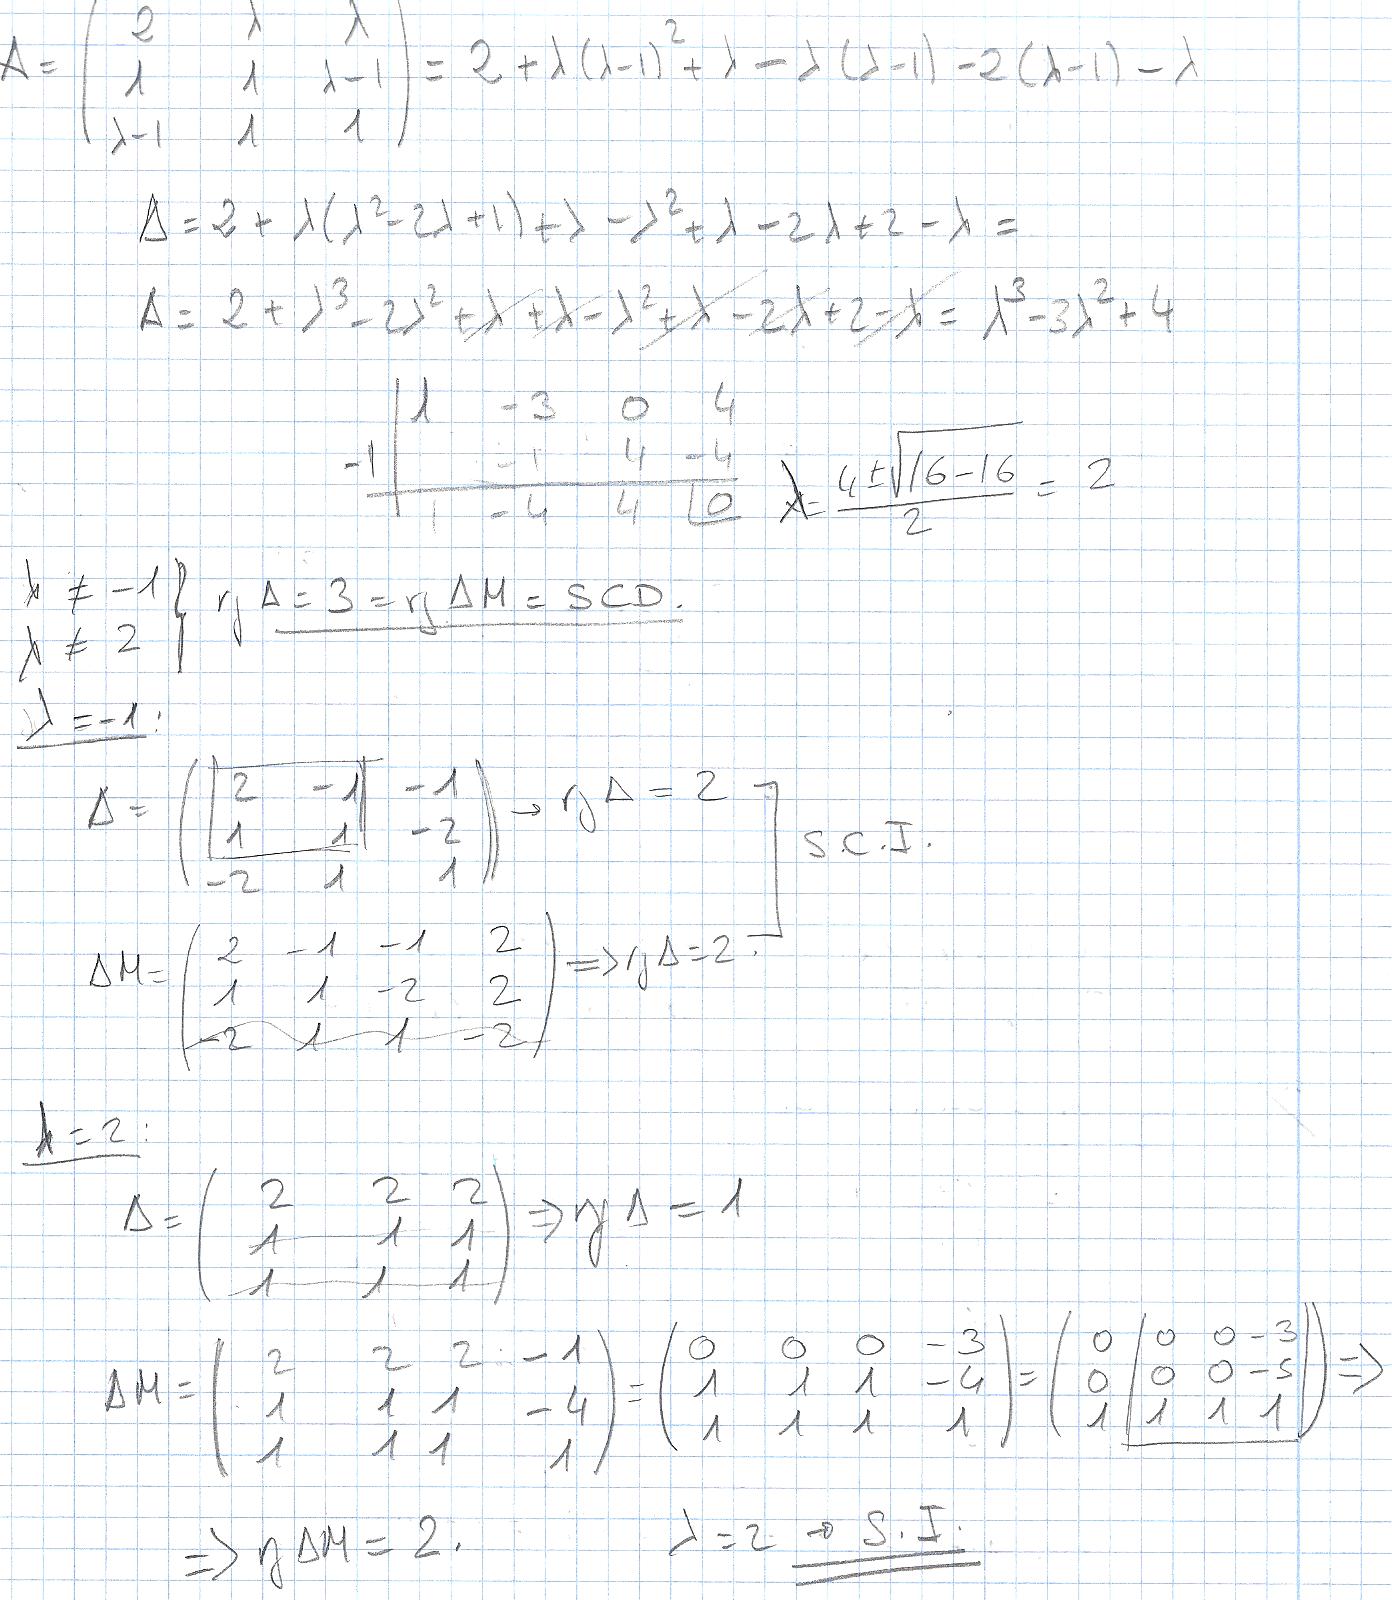 A = ( 2 λ λ
1 1 λ-1
λ-1 1 1 ) = 2 + λ(λ-1)² + λ - λ(λ-1) - 2(λ-1) - λ
A = 2 + λ(λ²-2λ+1) + λ - λ² + λ - 2λ + 2 - λ =
A = 2 + λ³ - 2λ² + λ + λ - λ² + λ - 2λ + 2 - λ = λ³ - 3λ² + 4
1 -3 0 4
-1 | -1 4 -4
1 -4 4 0
λ = (4 ± √16-16) / 2 = 2
λ ≠ -1
λ ≠ 2 } rg A = 3 = rg AM = SCD.
λ = -1:
A = ( 2 -1 -1
1 1 -2
-2 1 1 ) → rg A = 2
S.C.I.
AM = ( 2 -1 -1 2
1 1 -2 2
-2 1 1 -2 ) => rg A = 2.
λ = 2:
A = ( 2 2 2
1 1 1
1 1 1 ) => rg A = 1
AM = ( 2 2 2 -1
1 1 1 -4
1 1 1 1 ) = ( 0 0 0 -3
1 1 1 -4
1 1 1 1 ) = ( 0 0 0 -3
0 0 0 -5
1 1 1 1 ) =>
=> rg AM = 2. λ = 2 → S.I.